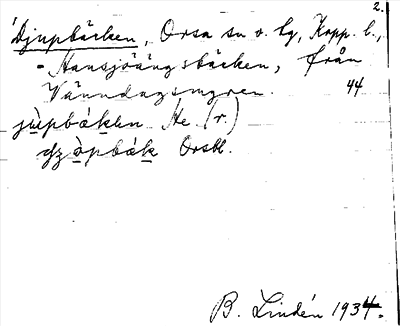 2.
'Djupbäcken, Orsa sn o. tg, Kopp. l.,
- Hansjöängsbäcken, från
Vänndagsmyren. 44
jùpbäkken He. (r.)
òpbäk Orsbl.
B. Lindén 1934.